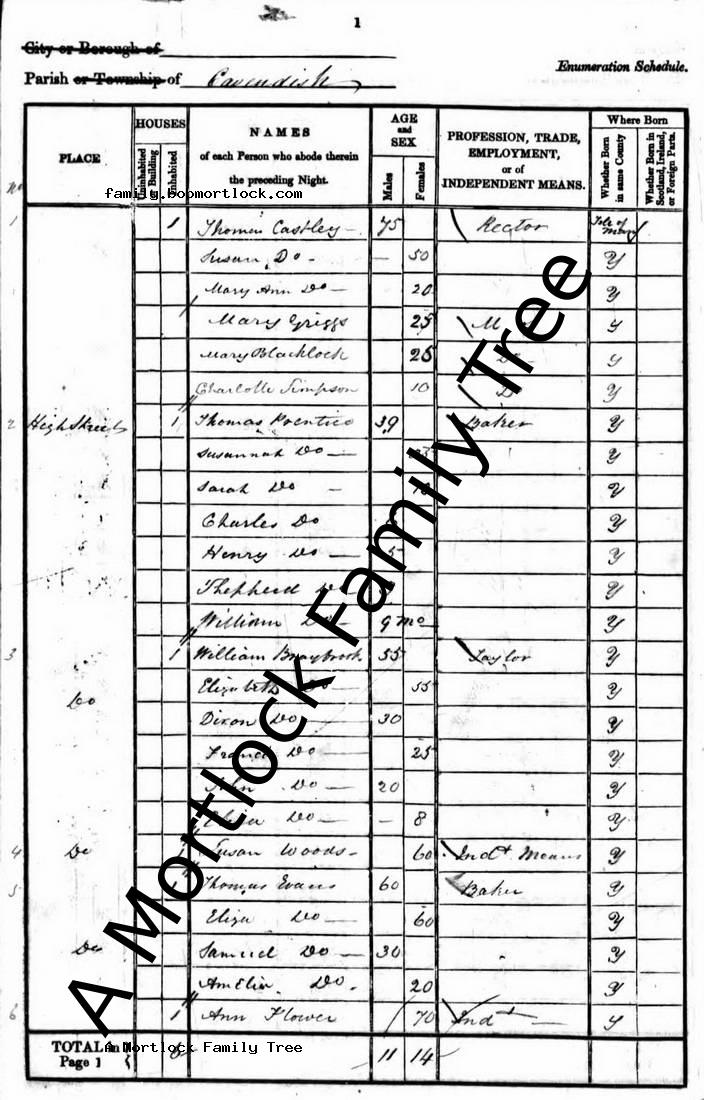 1
City or Borough of
Parish or Township of Cavendish
Enumeration Schedule.
PLACE
HOUSES
Uninhabited or Building
Inhabited
NAMES
of each Person who abode therein
the preceding Night.
AGE
and
SEX
Males
Females
PROFESSION, TRADE,
EMPLOYMENT,
or of
INDEPENDENT MEANS.
Where Born
Whether Born in same County
Whether Born in Scotland, Ireland, or Foreign Parts.
family.bopmortlock.com
1 1 Thomas Castley 75 Rector Isle of
Susan Do - 50 Y
Mary Ann Do 20 Y
Mary Griggs 25 Y
Mary Blacklock 25 Y
Charlotte Simpson 10 Y
2 High Street 1 Thomas Prentice 39 Baker Y
Susannah Do Y
Sarah Do Y
Charles Do Y
Henry Do Y
Shepherd Y
William Do 9 mo Y
3 1 William Braybrook 55 Taylor Y
Do Elizabeth Do 55 Y
Dixon Do 30 Y
Do 25 Y
Do 20 Y
Do - 8 Y
4 Do Susan Woods 60 Indt Means Y
5 Thomas Evans 60 Baker Y
Eliza Do 60 Y
Do Samuel Do 30 Y
Amelia Do. 20 Y
6 1 Ann Flower 70 Ind Y
TOTAL in
Page 1
11 14
A Mortlock Family Tree
A Mortlock Family Tree